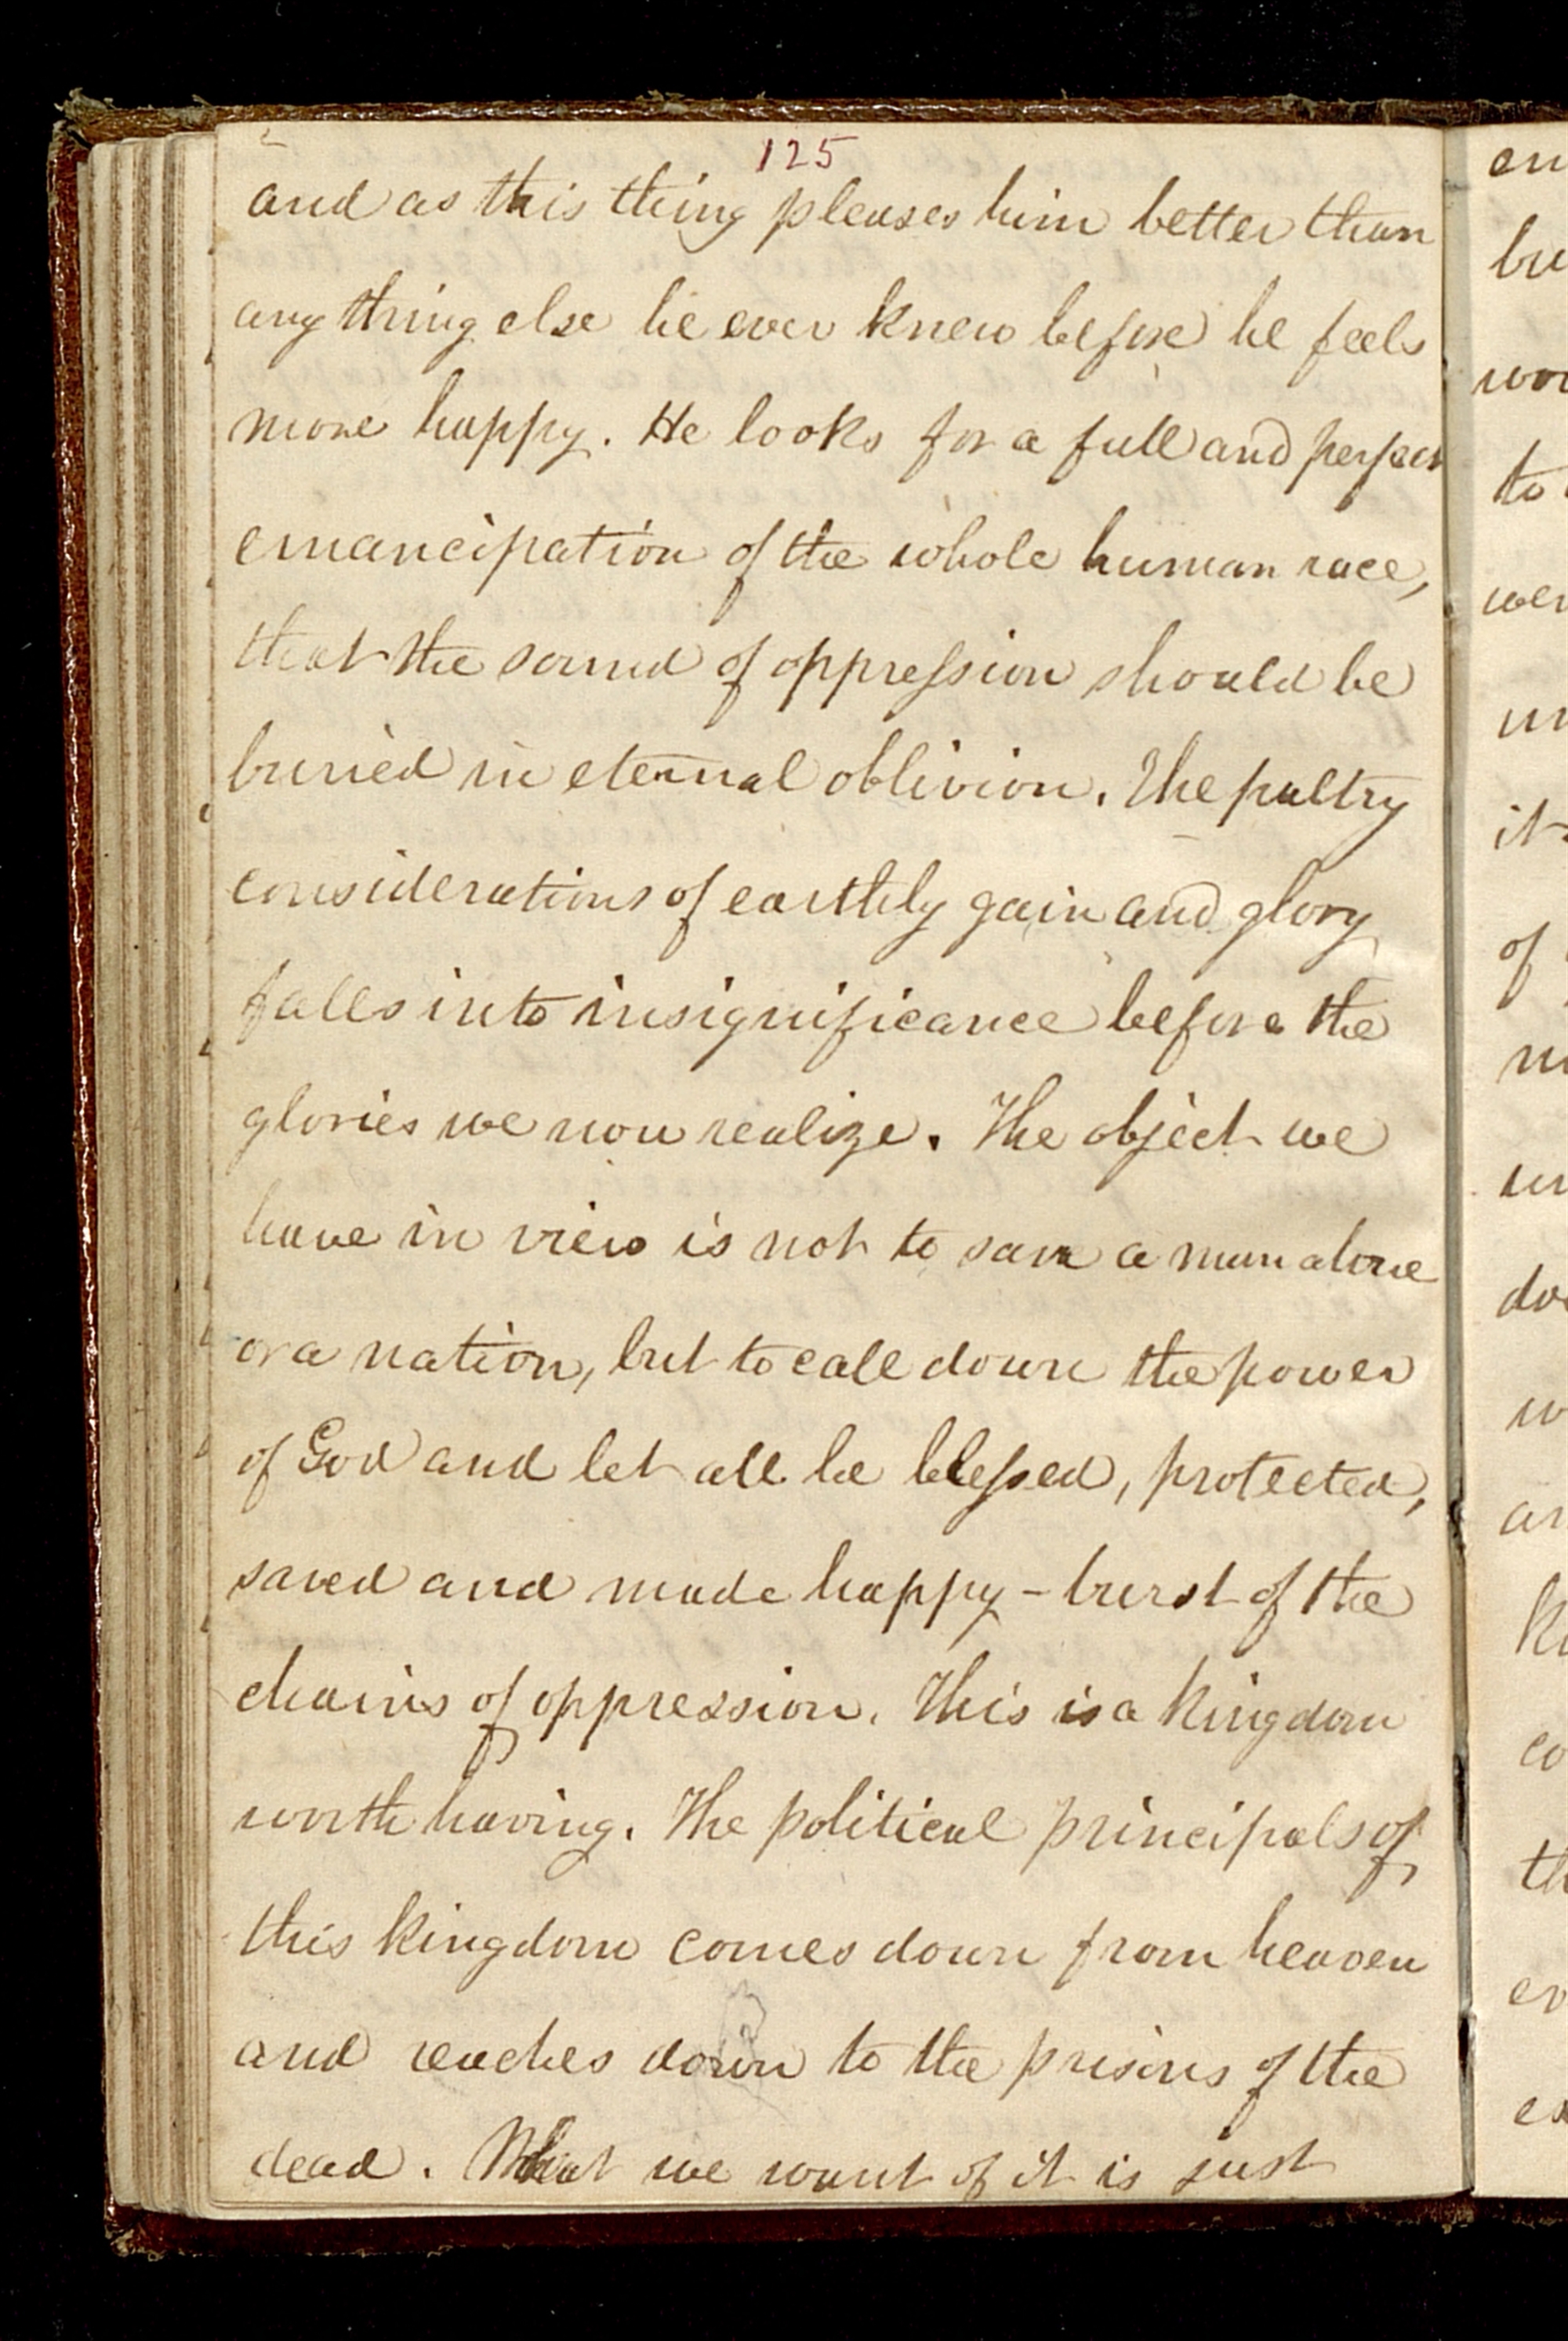 125
and as this thing pleases him better than
any thing else he ever knew before he feels
more happy. He looks for a full and perfect
emancipation of the whole human race,
that the sound of oppression should be
buried in eternal oblivion. The paltry
considerations of earthly gain and glory
falls into insignificance before the
glories we now realize. The object we
have in view is not to save a man alone
or a nation, but to call down the power
of God and let all be blessed, protected,
saved and made happy – burst of the
chains of oppression. This is a kingdom
worth having. The political principals of
this kingdom comes down from heaven
and reaches down to the prisons of the
dead. What we want of it is just
en
bu
wor
to
wer
un
it
of
do
w
ar
co
th